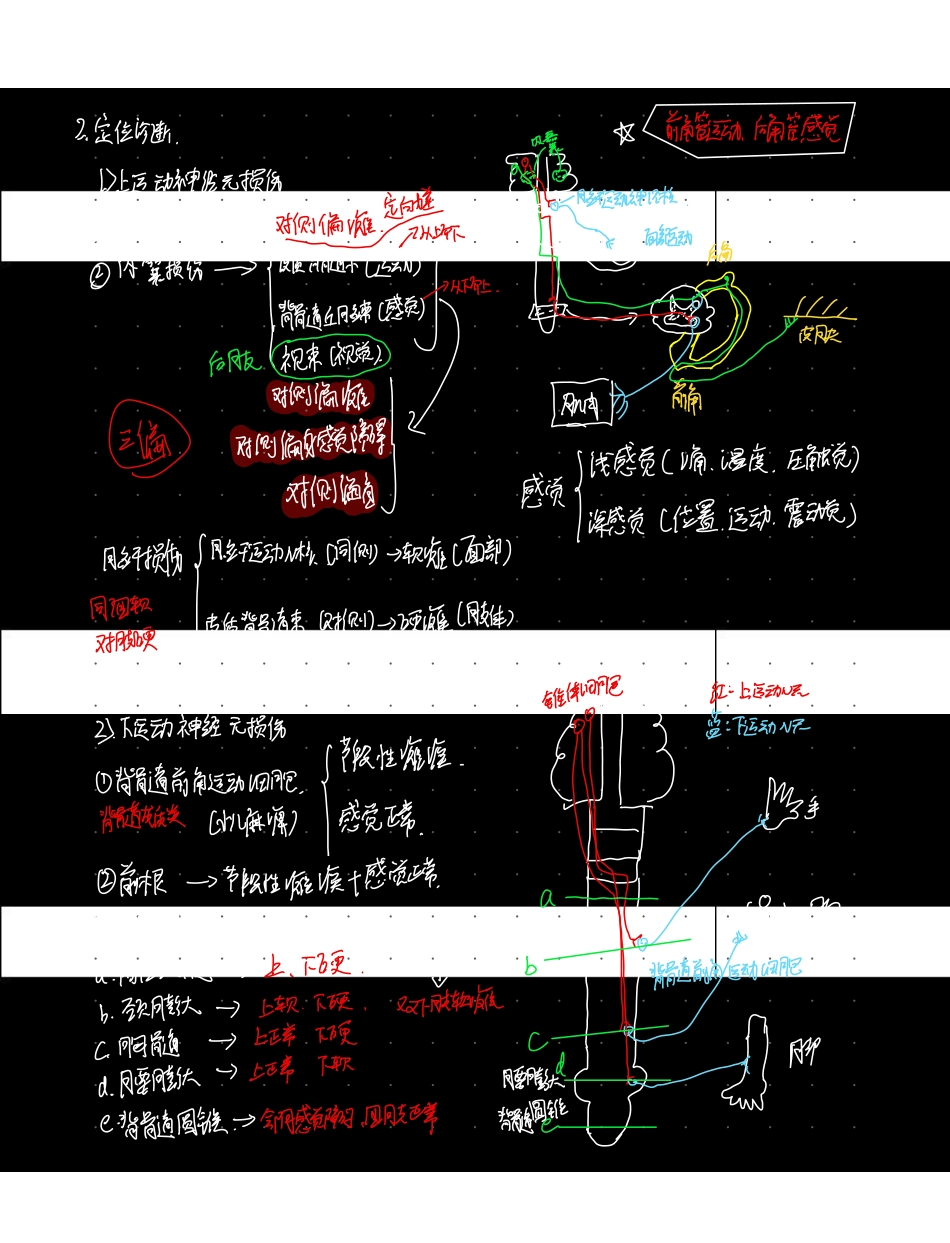 2.定位诊断.
☆ 前角管运动.后角管感觉
1>上运动神经元损伤
内囊
对侧偏瘫 定向凝
↗从上下
脑干运动神经核
面部运动
② 内囊损伤 →
(运动)
脊髓丘脑束(感觉) →从下上.
后肢 视束(视觉)
后角
皮肤
前角
肌肉
三偏
对侧偏瘫
对侧偏身感觉障碍
对侧偏盲
感觉
浅感觉(痛.温度.压触觉)
深感觉(位置.运动.震动觉)
脑干损伤
脑干运动N核(同侧)→软瘫(面部)
皮质脊髓束(对侧)→硬瘫(肢体)
同面软
对肢硬
锥体细胞
红:上运动N元
蓝:下运动N元
2>下运动神经元损伤
①脊髓前角运动细胞.
脊髓灰质炎 (小儿麻痹)
节段性瘫痪.
感觉正常.
手
②前根 → 节段性瘫痪+感觉正常.
a
b
脊髓前角运动细胞
上、下硬.
b.颈膨大 → 上软.下硬.
双下肢软瘫
c.胸髓 → 上正常 下硬
d.腰膨大 → 上正常 下软
e.脊髓圆锥 → 会阴感觉障碍.四肢正常
c
d
腰膨大
脊髓圆锥
e
脚